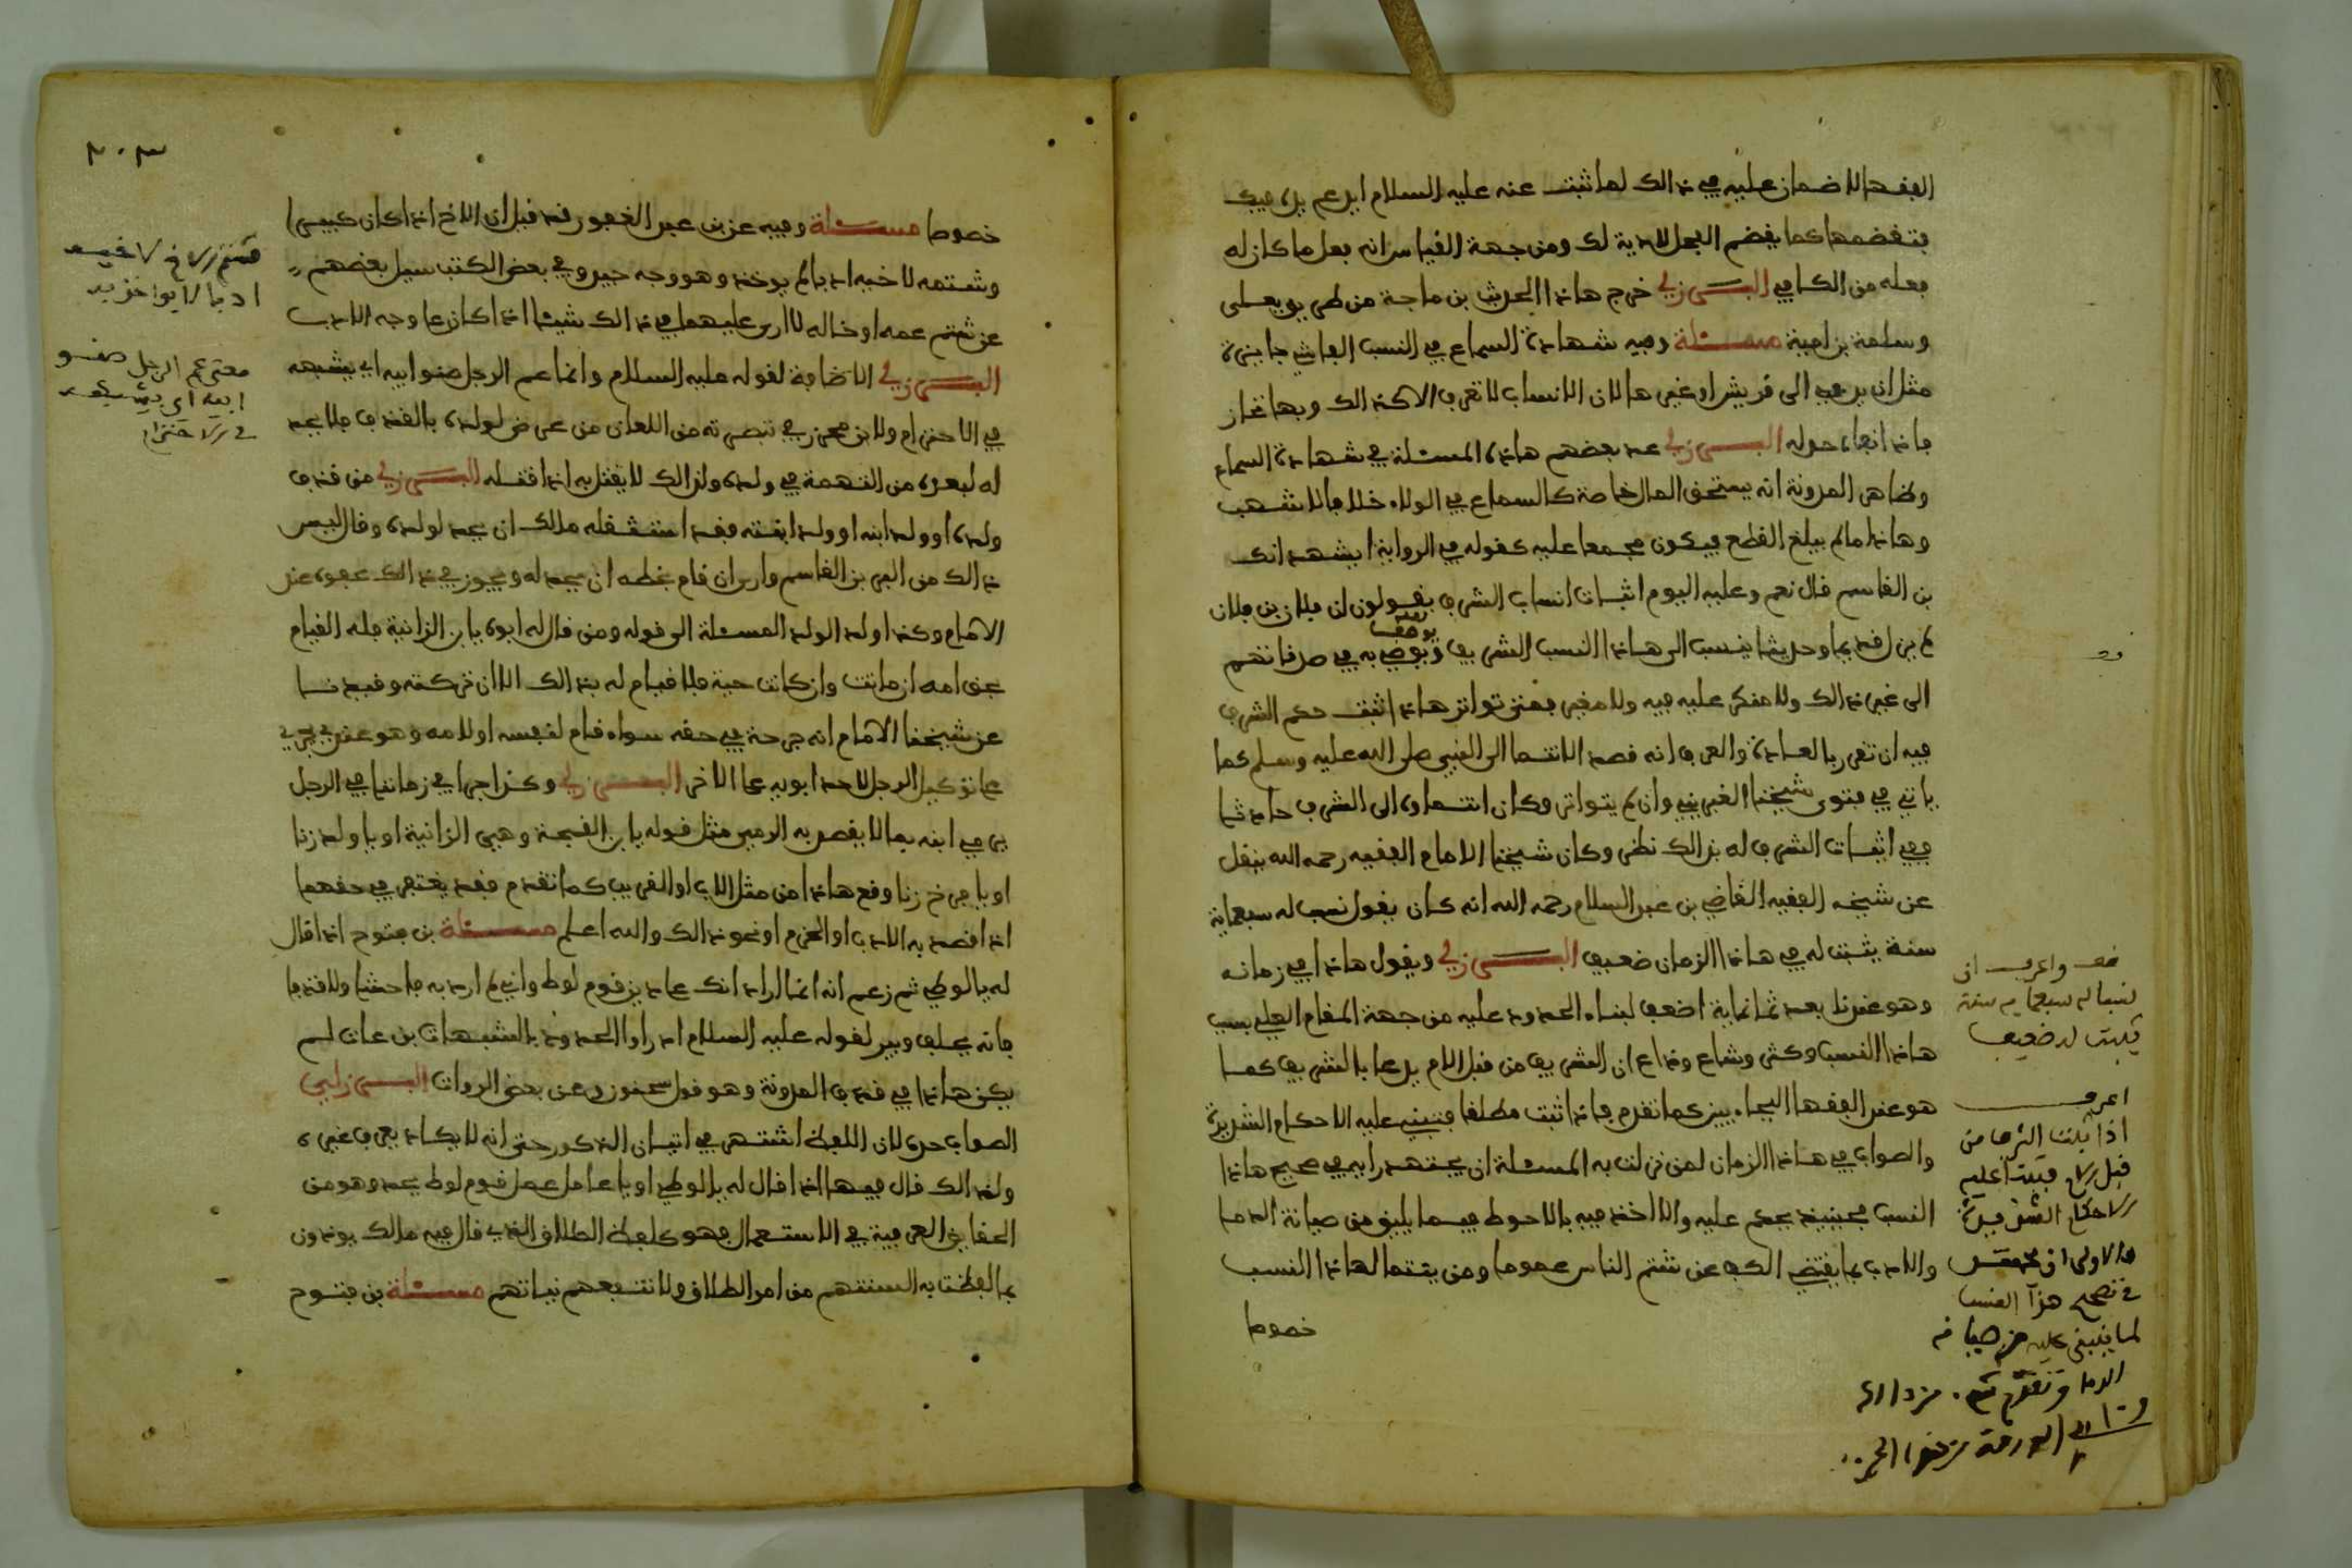 الفقها لا ضمان عليه في ذالك لما ثبت عنه عليه السلام ايدعم يده في فيك
فتقضمها كما يقضم الفحل لادية لك ومن جهة القياس انه فعل ما كان له
فعله من الكافي البرزلي خرج هاذا الحديث بن ماجة من طريق يعلى
وسلمة بن امية مسئلة وفيه شهادة السماع في النسب الفاشي جايزة
مثل ان يدعي الى قريش او غيرها لان الانساب لا تعرف الا كذالك وبها تحاز
فاذا نفاه حد له البرزلي عد بعضهم هاذه المسئلة في شهادة السماع
وظاهر المدونة انه يستحق المال خاصة كالسماع في الولاء خلافا لاشهب
وهاذا ما لم يبلغ القطع فيكون مجمعا عليه كقوله في الرواية ايشهد انك
بن القاسم قال نعم وعليه اليوم اثبات انساب الشرف يقولون ان فلان بن فلان
لم يزل قديما وحديثا ينسب الى هاذا النسب الشريف ويوصف به في صدقاتهم
الى غير ذالك ولا منكر عليه فيه ولا مغير فمتى تواتر هاذا ثبت حكم الشرف
فيه ان تقرر بالعادة والعرف انه قصد الانتما الى النبي صلى الله عليه وسلم كما
ياتي في فتوى شيخنا الغبريني وان لم يتواتر وكان انتماوه الى الشرف حادثا
ففي اثبات الشرف له بذالك نظر وكان شيخنا الامام الفقيه رحمه الله ينقل
عن شيخه الفقيه القاضي بن عبد السلام رحمه الله انه كان يقول نسب له سبعماية
سنة يثبت له في هاذا الزمان ضعيف البرزلي ويقول هاذا في زمانه
وهو عندنا بعد ثمانماية اضعف لبناء الحدود عليه من جهة المقام العلي بسبب
هاذا النسب وكثر وشاع وذاع ان الشريف من قبل الام يدعا بالشريف كما
هو عند الفقها البجاءيين كما تقدم فاذا ثبت مطلقا فتبنى عليه الاحكام الشديدة
والصواب في هاذا الزمان لمن نزلت به المسئلة ان يجتهد رايه في صحيح هاذا
النسب فحينيذ يحكم عليه والا اخذ فيه بالاحوط فيما يليق من صيانة الدما
والادب بما يقتضي الكف عن شتم الناس عموما ومن ينتما لهاذا النسب
خصوصا
قف واعرف ان
نسبا له سبعماية سنة
يثبت له ضعيف
اعرف
اذا ثبت الشرف من
قبل الام فتبنى عليه
الاحكام الشديدة
والاولى ان يجتهد
في تصحيح هذا النسب
لما ينبني عليه من صيانة
الدما
٣٠٣
خصوصا مسئلة وفيه عن بن عبد الغفور قد قيل ان الاخ اذا كان كبيرا
وشتمه لاخيه ادبا لم يوخذ وهو وجه جيد وفي بعض الكتب سيل بعضهم
عن شتم عمه او خاله لا ارى عليهما في ذالك شيئا اذا كان على وجه الادب
البرزلي الاضافة لقوله عليه السلام وانما عم الرجل صنو ابيه اي يشبهه
في الاحترام ولابن محرز في تبصرته من اللعان من عرض لولده بالقذف فلا يحد
له لبعده من التهمة في ولده ولذالك لا يقتل به اذا قتله البرزلي من قذف
ولده او ولد ابنه او ولد ابنته فقد استثقله مالك ان يحد لولده وقال ليس
ذالك من البر بن القاسم وارى ان قام بحقه ان يحد له ويجوز في ذالك عفوه عند
الامام وكذا ولد الولد المسئلة الى قوله ومن قال له ابوه يا بن الزانية فله القيام
بحق امه ان ماتت وان كانت حية فلا قيام له بذالك الا ان توكله وقيدنا
عن شيخنا الامام انه جرحة في حقه سواء قام لنفسه او لامه وهو عندي يجري
على توكيل الرجل لاحد ابويه على الاخر البرزلي وكذا جرا في زماننا في الرجل
يرمي ابنه بما لا يقصد به الرمي مثل قوله يا بن القحبة وهي الزانية او يا ولد زنا
او يا فرخ زنا وقع هاذا من مثل الاب او القريب كما تقدم فقد يغتفر في حقهما
اذا قصد به الادب او الحزم او نحو ذالك والله اعلم مسئلة بن فتوح اذا قال
له يا لوطي ثم زعم انه انما اراد انك على دين قوم لوط واني لم ارد به فاحشة ولا قذفا
فانه يحلف ويبر لقوله عليه السلام ادراوا الحدود بالشبهات بن عات لم
يكن هاذا في قذف المدونة وهو قول سحنون وعن بعض الروات البرزلي
الصواب حده لان اللفظ اشتهر في اتيان الذكور حتى انه لا يكاد يعرف غيره
ولذالك قال فيها اذا قال له يا لوطي او يا عامل عمل قوم لوط يحد وهو من
الحقايق العرفية في الاستعمال فهو كلفظ الطلاق الذي قال فيه مالك يوخذون
بما لفظت به السنتهم من امر الطلاق ولا تنفعهم نياتهم مسئلة بن فتوح
شتم الاخ لاخيه
ادبا لا يواخذ به
معنى عم الرجل صنو
ابيه اي يشبهه
في الاحترام